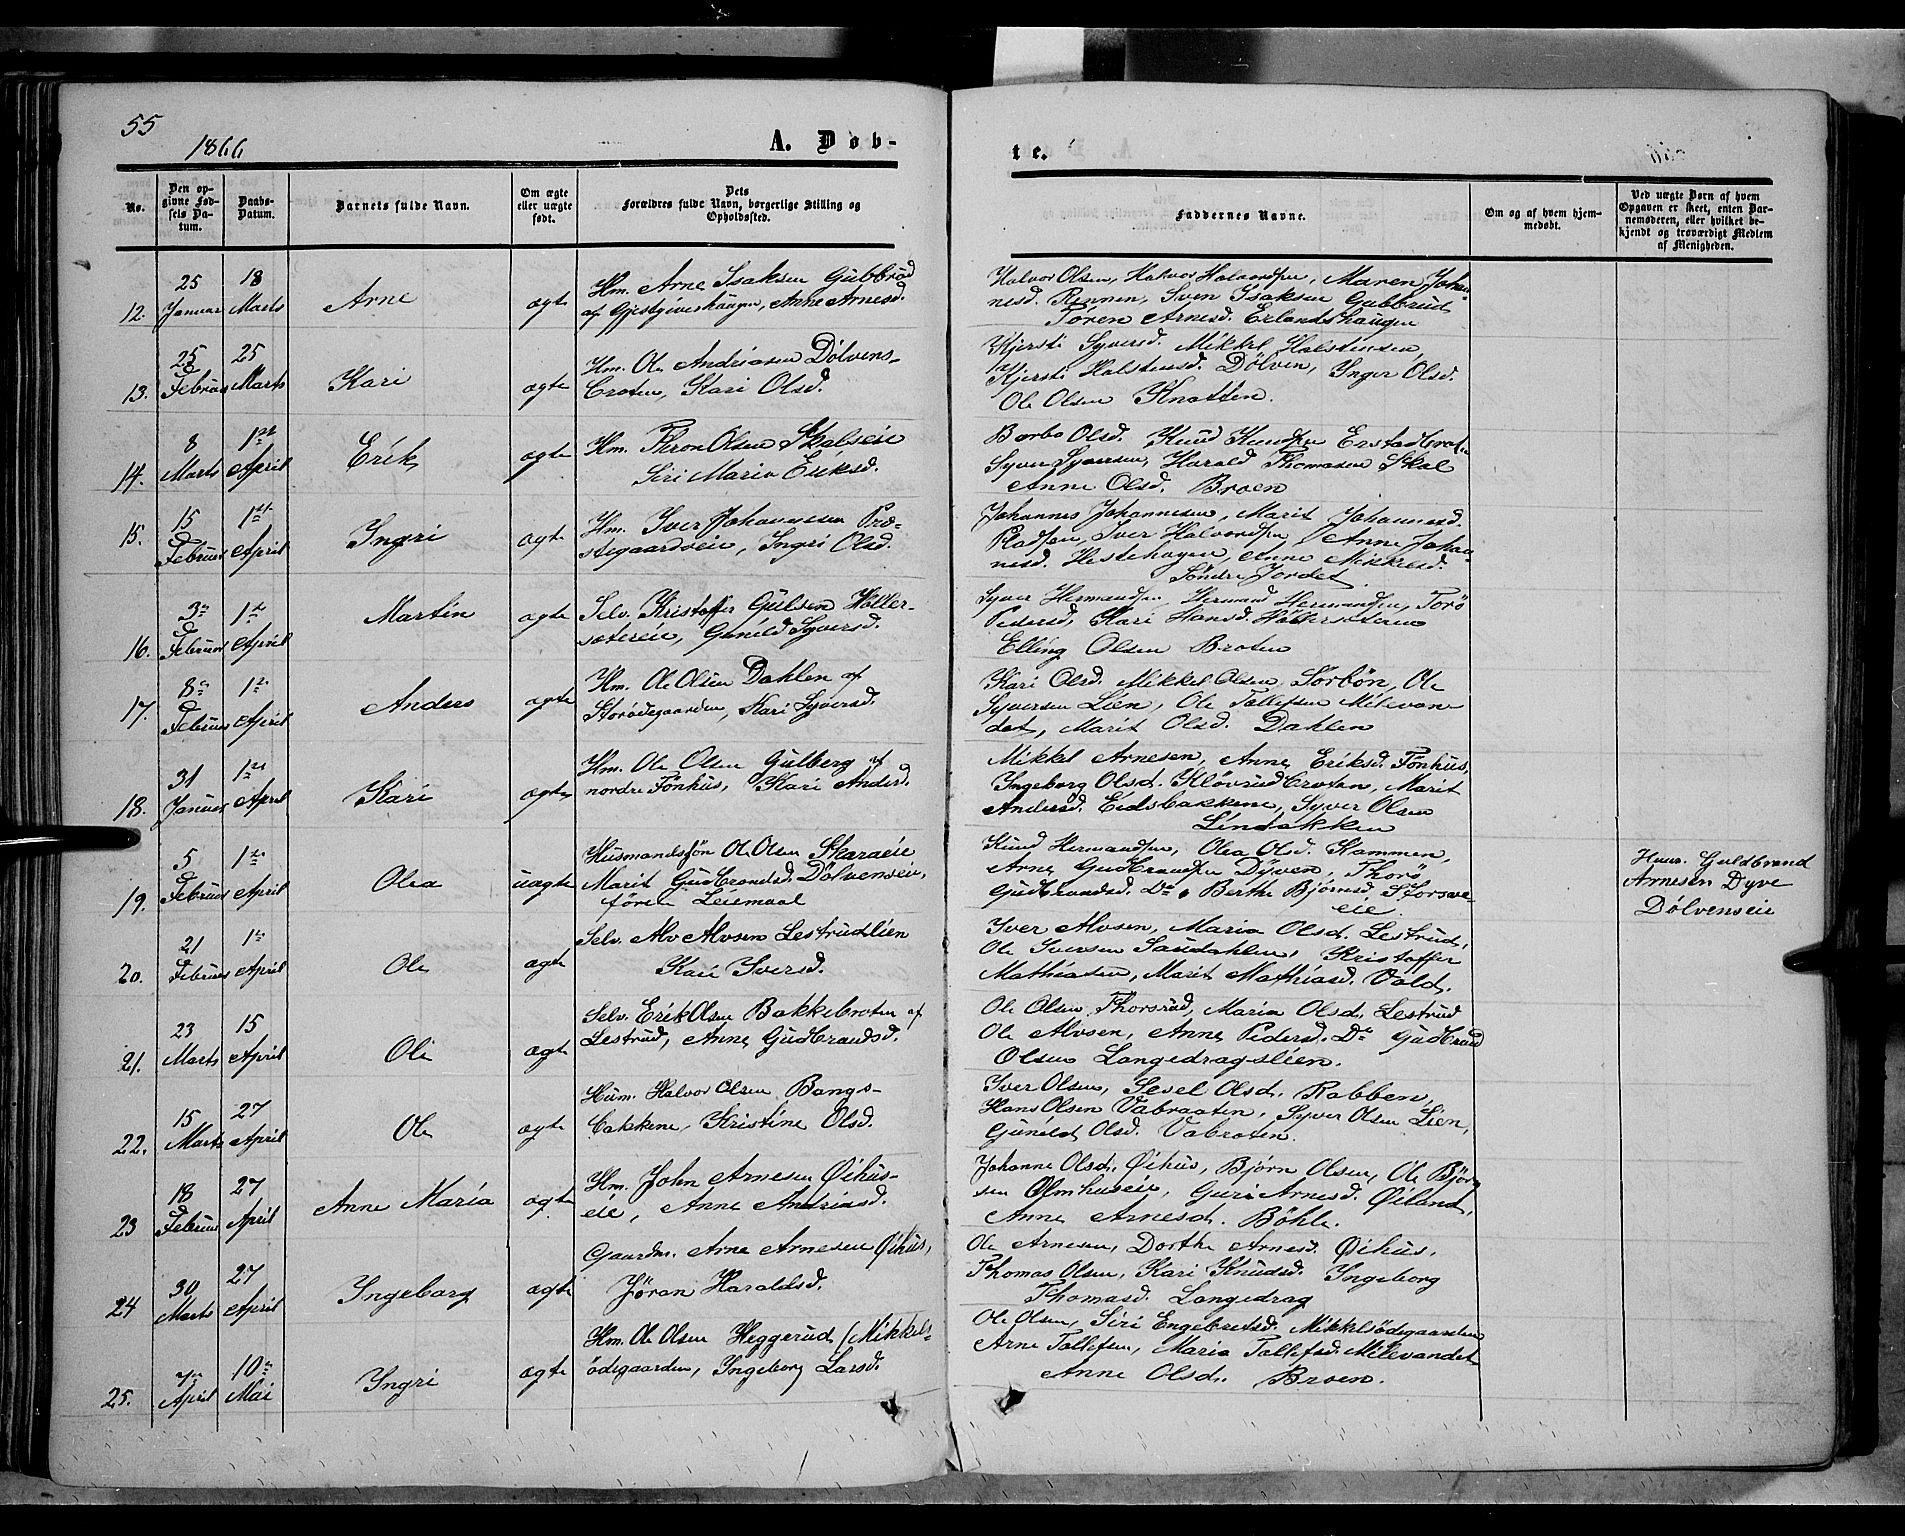 55
1866
A. Døb-
te.
No.
Den op-
givne Fød-
sels Da-
tum.
Daabs-
Datum.
Barnets fulde Navn.
Om ægte
eller uægte
født.
Dets
Forældres fulde Navn, borgerlige Stilling og
Opholdssted.
Faddernes Navne.
Om og af hvem hjem-
medøbt.
Ved uægte Børn af hvem
Opgaven er skeet, enten Bar-
nemoderen, eller hvilket be-
kjendt og troværdigt Medlem
af Menigheden.
12. 25 Januar 18 Marts Arne ægte
Hm. Arne Isaksen Gubbrud
af Gjestgiverhaugen, Anne Arnesd.
Halvor Olsen, Halvor Halvordsen, Maren Johan-
nesd. Rennen, Sven Isaksen Gubbrud
Tören Arnesd. Erlandshaugen
13. 25 Februar 25 Marts Kari ægte
Hm. Ole Andreasen Dølvens-
broten, Kari Olsd.
Kjersti Syversd. Mikkel Halstensen,
Kjersti Halstensd. Dølven, Inger Olsd.
Ole Olsen Knatten.
14. 8 Marts 1ste April Erik ægte
Hm. Thron Olsen Skalseie
Siri Maria Eriksd.
Barbo Olsd. Knud Knudsen Erstadbrat
Syver Syversen, Harald Thomasen Skal
Anne Olsd. Broen
15. 15 Februar 1ste April Ingri ægte
Hm. Iver Johannesen Præ-
stegaardseie, Ingri Olsd.
Johannes Johannesen, Marit Johannesd.
Pladsen, Iver Halvordsen, Anne Johan-
nesd. Hestehagen, Anne Mikkelsd.
Søndre Jordet
16. 3de Februar 1ste April Martin ægte
Selv. Kristoffer Gulsen Høller-
sætereie, Gunild Syversd.
Syver Hermandsen, Hermand Hermandsen, Torö
Pedersd, Kari Hansd. Høllersæteren
Elling Olsen Broten
17. 8de Februar 1ste April Anders ægte
Hm. Ole Olsen Dahlen af
Storødegaarden, Kari Syversd.
Kari Olsd. Mikkel Olsen, Sørbön, Ole
Syversen Lien, Ole Tollefsen Milevan-
det, Marit Olsd. Dahlen
18. 31 Januar 1ste April Kari ægte
Hm. Ole Olsen Gulberg af
nordre Fönhus, Kari Andersd.
Mikkel Arnesen, Anne Eriksd. Fönhus,
Ingeborg Olsd. Kløvrudbroten, Marit
Andersd. Eidsbakkene, Syver Olsen
Lindekken
19. 5 Februar 1ste April Olea uægte
Husmandssøn Ole Olsen Skaraeie
Marit Gudbrandsd. Dölvenseie,
förste Leiemaal
Knud Hermandsen, Olea Olsd. Kammen,
Arne Gudbrandsen Dyven, Thorö
Gudbrandsd. Do, Berthe Bjørnsd. Storsve-
eie.
Husm. Guldbrand
Arnesen Dyve
Dölvenseie
20. 21 Februar 1ste April Ole ægte
Selv. Alv Alvsen Lestrudlien
Kari Iversd.
Iver Alvsen, Maria Olsd. Lestrud,
Ole Iversen Sandahlen, Kristoffer
Mathiasen, Marit Mathiasd. Vold.
21. 23 Marts 15 April Ole ægte
Selv. Erik Olsen Bakkebroten af
Lestrud, Anne Gudbrandsd.
Ole Olsen Thorsrud, Maria Olsd. Lestrud
Ole Alvsen, Anne Pedersd. Do Gudbrand
Olsen Langedragslien.
22. 15 Marts 27 April Ole ægte
Husm. Halvor Olsen Bangs-
bakkene, Kristine Olsd.
Iver Olsen, Sevel Olsd. Rabben,
Hans Olsen Vabraaten, Syver Olsen Lien,
Gunild Olsd. Vabroten.
23 18 Februar 27 April Anne Maria ægte
Hm. John Arnesen Øihus-
eie, Anne Andriasd.
Johanne Olsd. Øihus, Bjørn Olsen, Ole Bjør
sen Olmhuseie, Guri Arnesd. Øiland,
Anne Arnesd. Böhle.
24 30 Marts 27 April Ingeborg ægte
Gaardm. Arne Arnesen Øihus,
Jöran Haraldsd.
Ole Arnesen, Dorthe Arnesd. Øihus,
Thomas Olsen, Kari Knudsd. Ingeborg
Thomasd. Langedrag
25. 7de April 10de Mai Ingri ægte
Hm. Ole Olsen Heggerud (Mikkels-
ødegaarden, Ingeborg Larsd.
Ole Olsen, Siri Engebretsd. Mikkelsødegaarden
Arne Tollefsen, Maria Tollefsd. Milevandet
Anne Olsd. Broen.